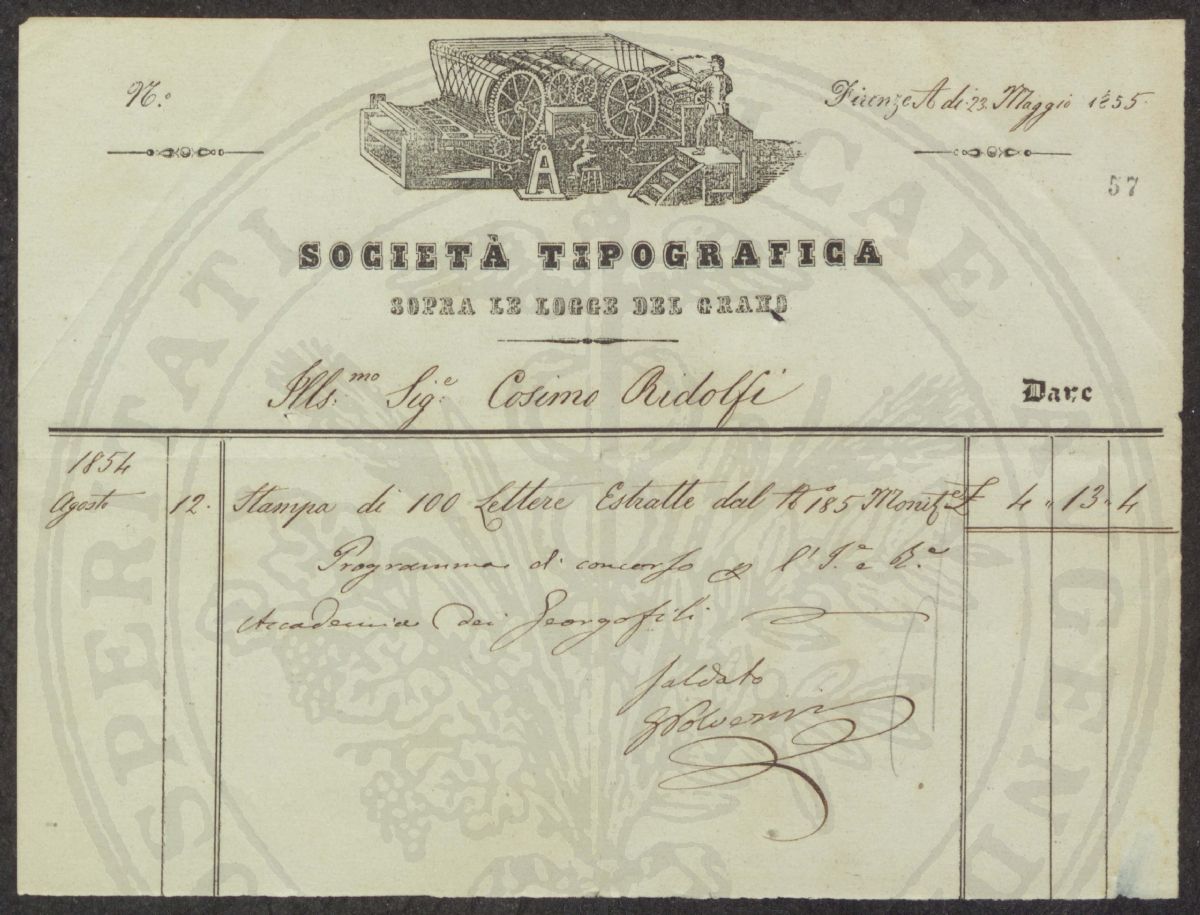 N.º
Firenze A dì 23 Maggio 1855
57
A
SOCIETÀ TIPOGRAFICA
SOPRA LE LOGGE DEL GRANO
Ills.mo Sig.e Cosimo Ridolfi
Dare
1854
Agosto 12. Stampa di 100 Lettere Estratte dal No 185 Monit.e £ 4 " 13 " 4
Programma di concorso l'I. e R.e
Accademia dei Georgofili
Saldato